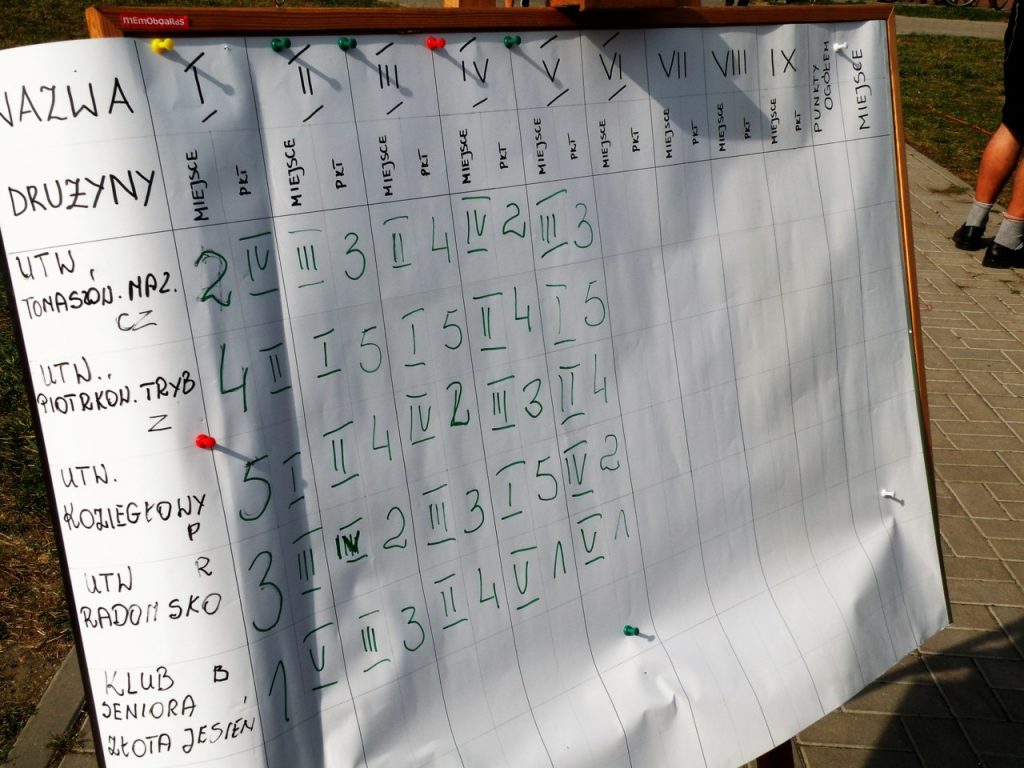 MEMOBOARDS
NAZWA DRUŻYNY I II III IV V VI VII VIII IX PUNKTY OGÓŁEM MIEJSCE
MIEJSCE PKT MIEJSCE PKT MIEJSCE PKT MIEJSCE PKT MIEJSCE PKT MIEJSCE PKT MIEJSCE PKT MIEJSCE PKT MIEJSCE PKT
UTW
TOMASZÓW. MAZ.
CZ
2 IV III 3 II 4 IV 2 III 3
UTW..
PIOTRKÓW. TRYB
Z
4 II I 5 I 5 II 4 I 5
UTW.
KOZIEGŁOWY
P
5 I II 4 IV 2 III 3 II 4
UTW R
RADOMSKO
3 III IV 2 III 3 I 5 IV 2
KLUB B
SENIORA
ZŁOTA JESIEŃ
1 V III 3 II 4 V 1 V 1